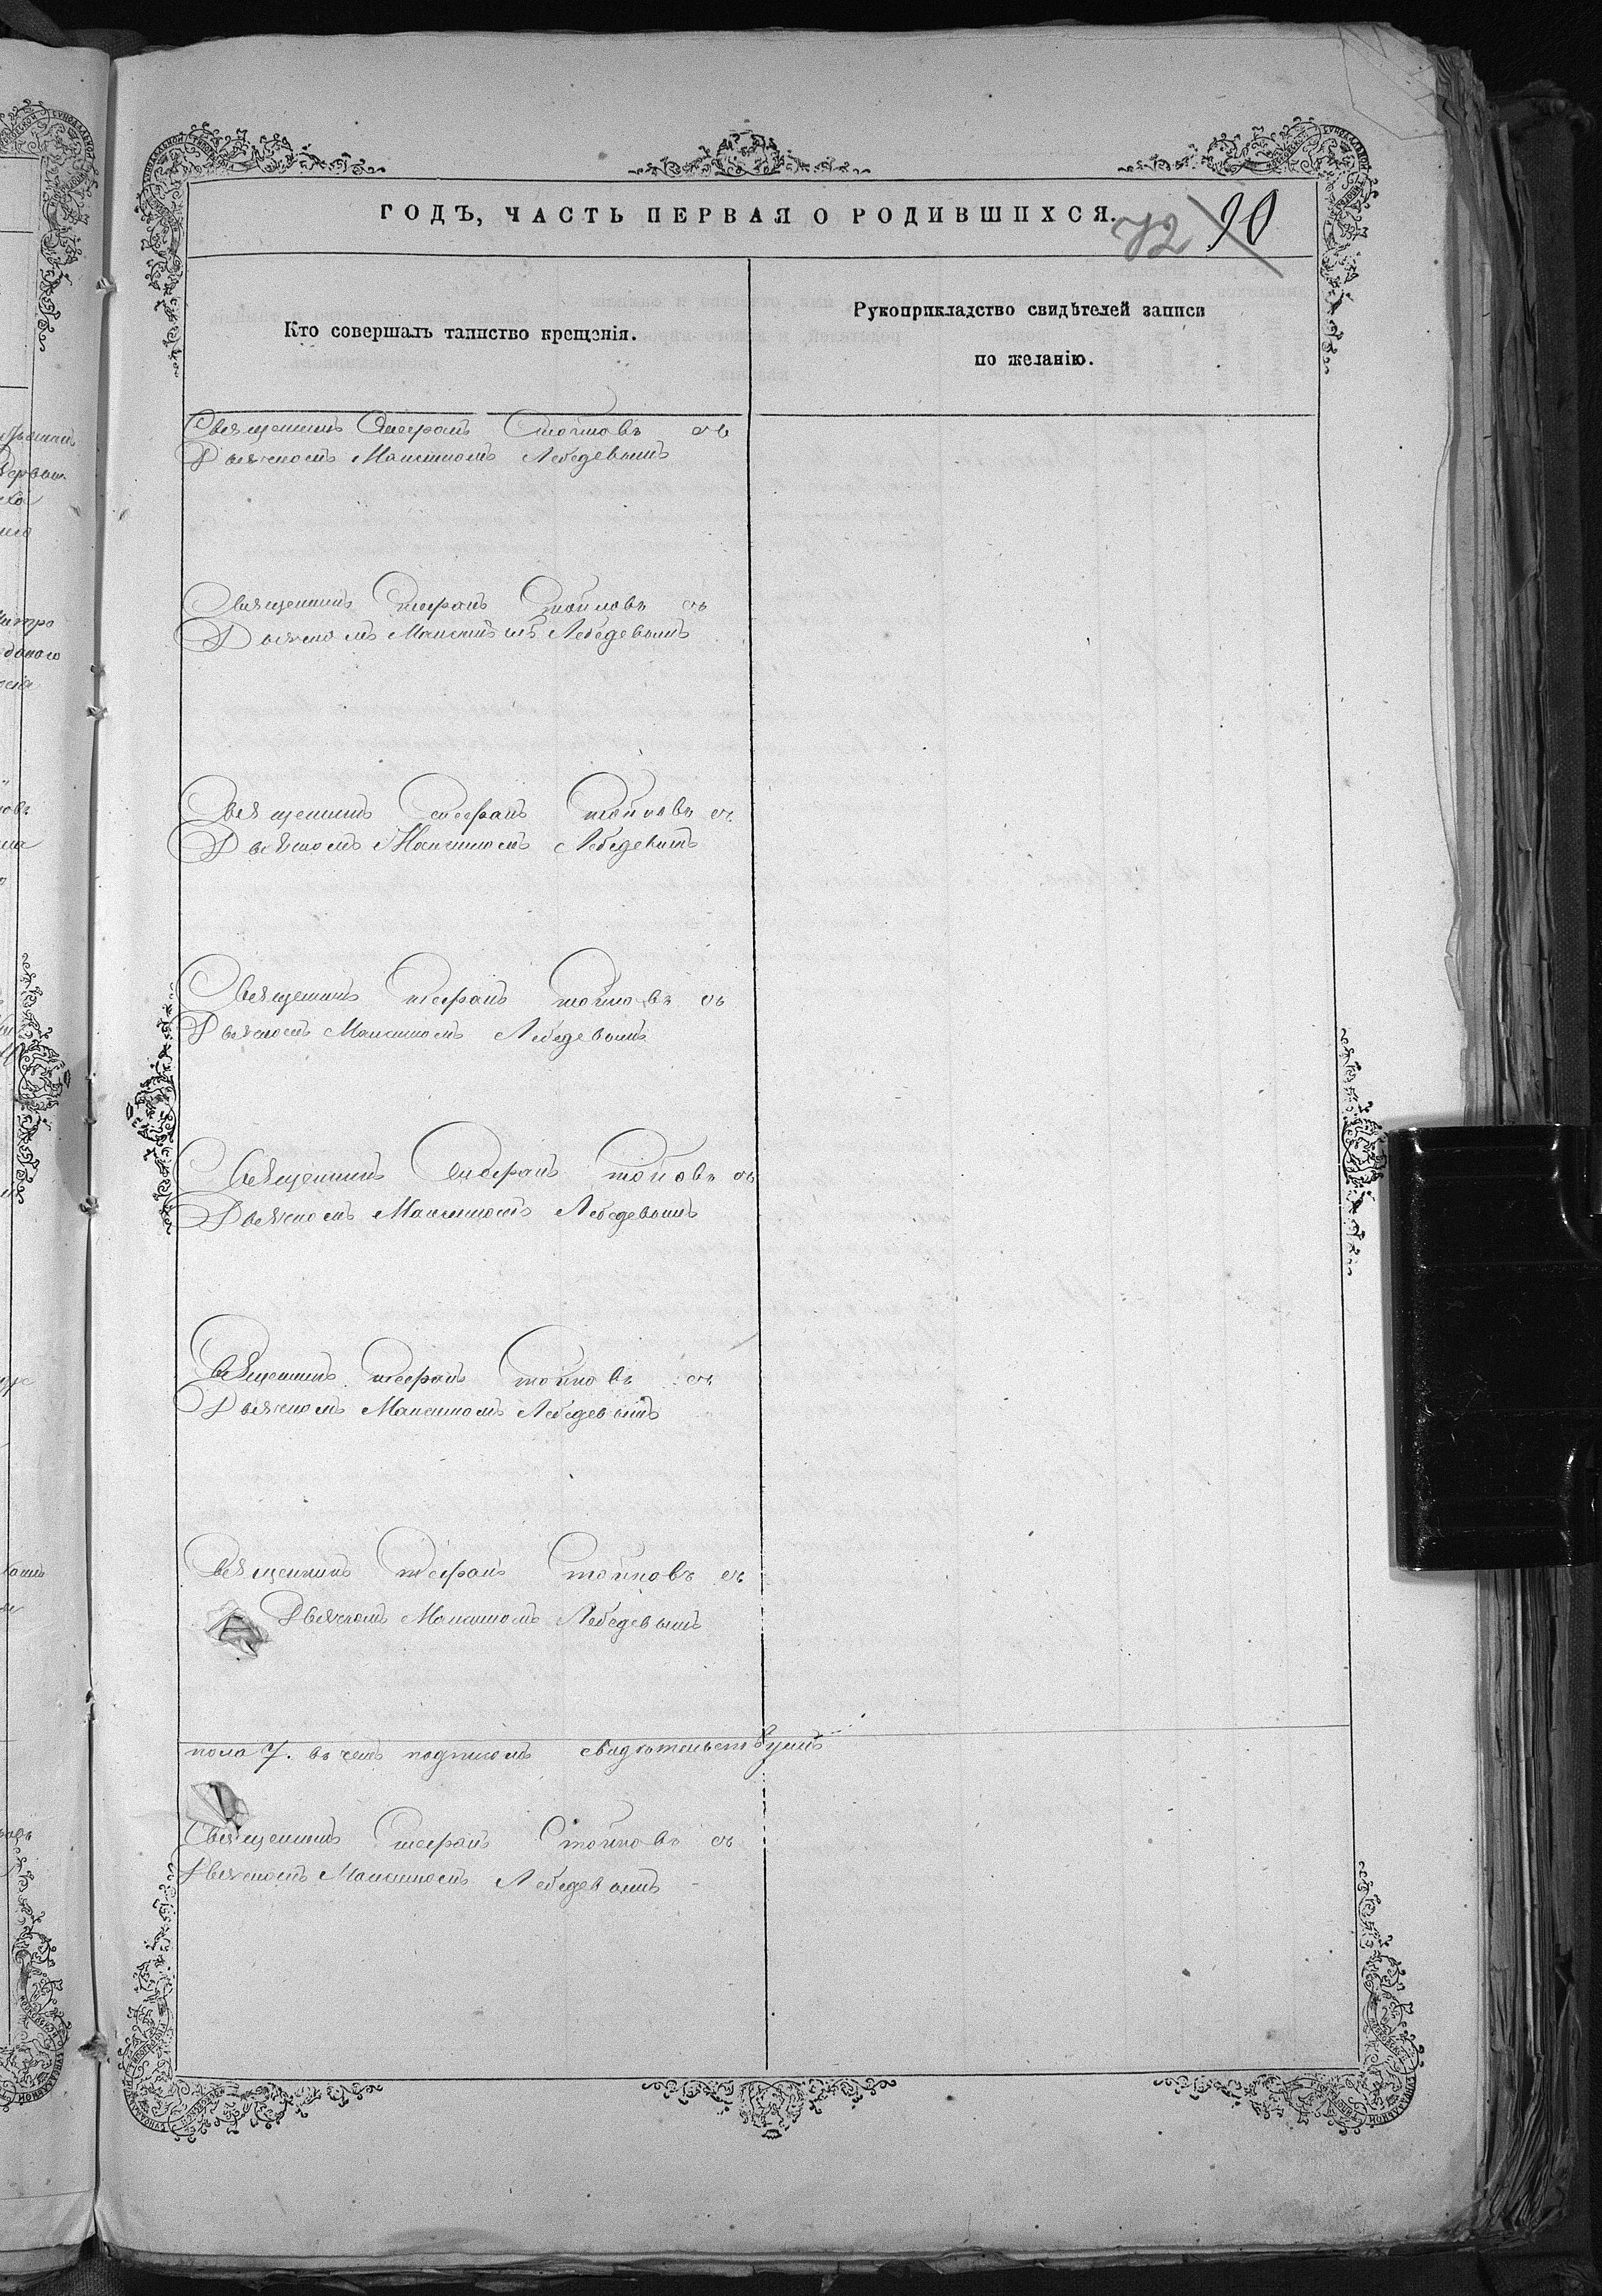 ГОДЪ, ЧАСТЬ ПЕРВАЯ О РОДИВШИХСЯ.
72 90
Кто совершалъ таинство крещенія.
Рукоприкладство свидѣтелей записи
по желанію.
Священикъ Стефанъ Стойковъ съ
Дьячкомъ Максимомъ Лебедевымъ
Священикъ Стефанъ Стойковъ съ
Дьячкомъ Максимомъ Лебедевымъ
Священикъ Стефанъ Стойковъ съ
Дьячкомъ Максимомъ Лебедевымъ
Священикъ Стефанъ Стойковъ съ
Дьячкомъ Максимомъ Лебедевымъ
Священикъ Стефанъ Стойковъ съ
Дьячкомъ Максимомъ Лебедевымъ
Священикъ Стефанъ Стойковъ съ
Дьячкомъ Максимомъ Лебедевымъ
Священикъ Стефанъ Стойковъ съ
Дьячкомъ Максимомъ Лебедевымъ
пола 7. въ чемъ подписомъ свидѣтельствуемъ
Священикъ Стефанъ Стойковъ съ
Дьячкомъ Максимомъ Лебедевымъ